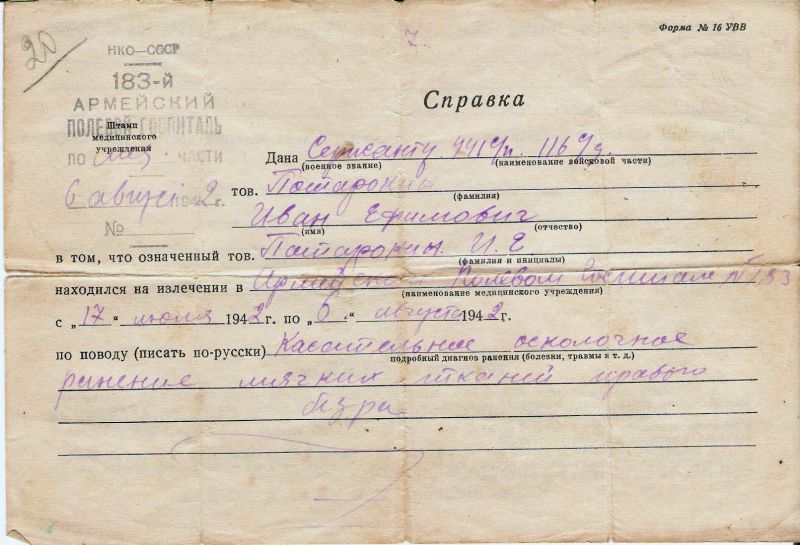 20
7.
Форма № 16 УВВ
НКО—СССР
183-й
АРМЕЙСКИЙ
ПОЛЕВОЙ ГОСПИТАЛЬ
Штамп
медицинского
учреждения
ПО ЧАСТИ
6 август 1942 г.
№
Справка
Дана Сержанту 441 с/п. 116 с/д.
(военное звание) (наименование войсковой части)
тов.
(фамилия)
Иван Ефимович
(имя) (отчество)
в том, что означенный тов. И. Е
(фамилия и инициалы)
находился на излечении в Армейском Полевом Госпитале № 183
(наименование медицинского учреждения)
с „17“ июля 1942 г. по „6.“ августа 1942 г.
по поводу (писать по-русски) Касательное осколочное
подробный диагноз ранения (болезни, травмы и т. д.)
ранение мягких тканей правого
бедра